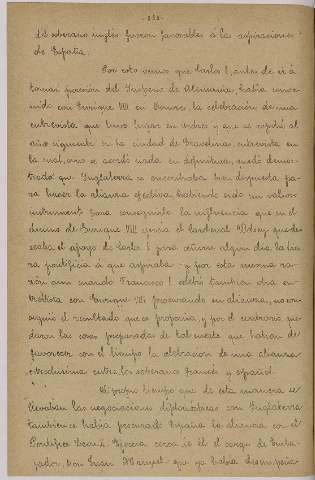 del soberano inglés fueron favorables á las aspiraciones
de España.
Por esto vemos que Carlos I, antes de ir á
tomar posesión del Imperio de Alemania, había conve-
nido con Enrique VIII en Bruges la celebración de una
entrevista que tuvo lugar en Ardres y que se repitió al
año siguiente en la ciudad de Gravelinas, entrevista en
la cual, sino se acordó nada en definitiva, quedó demos-
trado que Inglaterra se encontraba bien dispuesta pa-
ra hacer la alianza efectiva, habiendo sido un valioso
instrumento para conseguirlo la influencia que en el
ánimo de Enrique VIII ejercía el cardenal Wolsey que de-
seaba el apoyo de Carlos I para ceñirse algún día la tia-
ra pontificia á que aspiraba y por esta misma ra-
zón aun cuando Francisco I celebró también otra en-
trevista con Enrique VIII procurando su alianza, no con-
siguió el resultado que se proponía, y por el contrario que-
daron las cosas preparadas de tal modo que habían de
favorecer con el tiempo la celebración de una alianza
entre los soberanos inglés y español.
Al propio tiempo que de esta manera se
llevaban las negociaciones diplomáticas con Inglaterra
también había procurado España la alianza con el
Pontífice León X. Ejercía cerca de él el cargo de Emba-
jador, Don Juan Manuel que ya había desempeña-